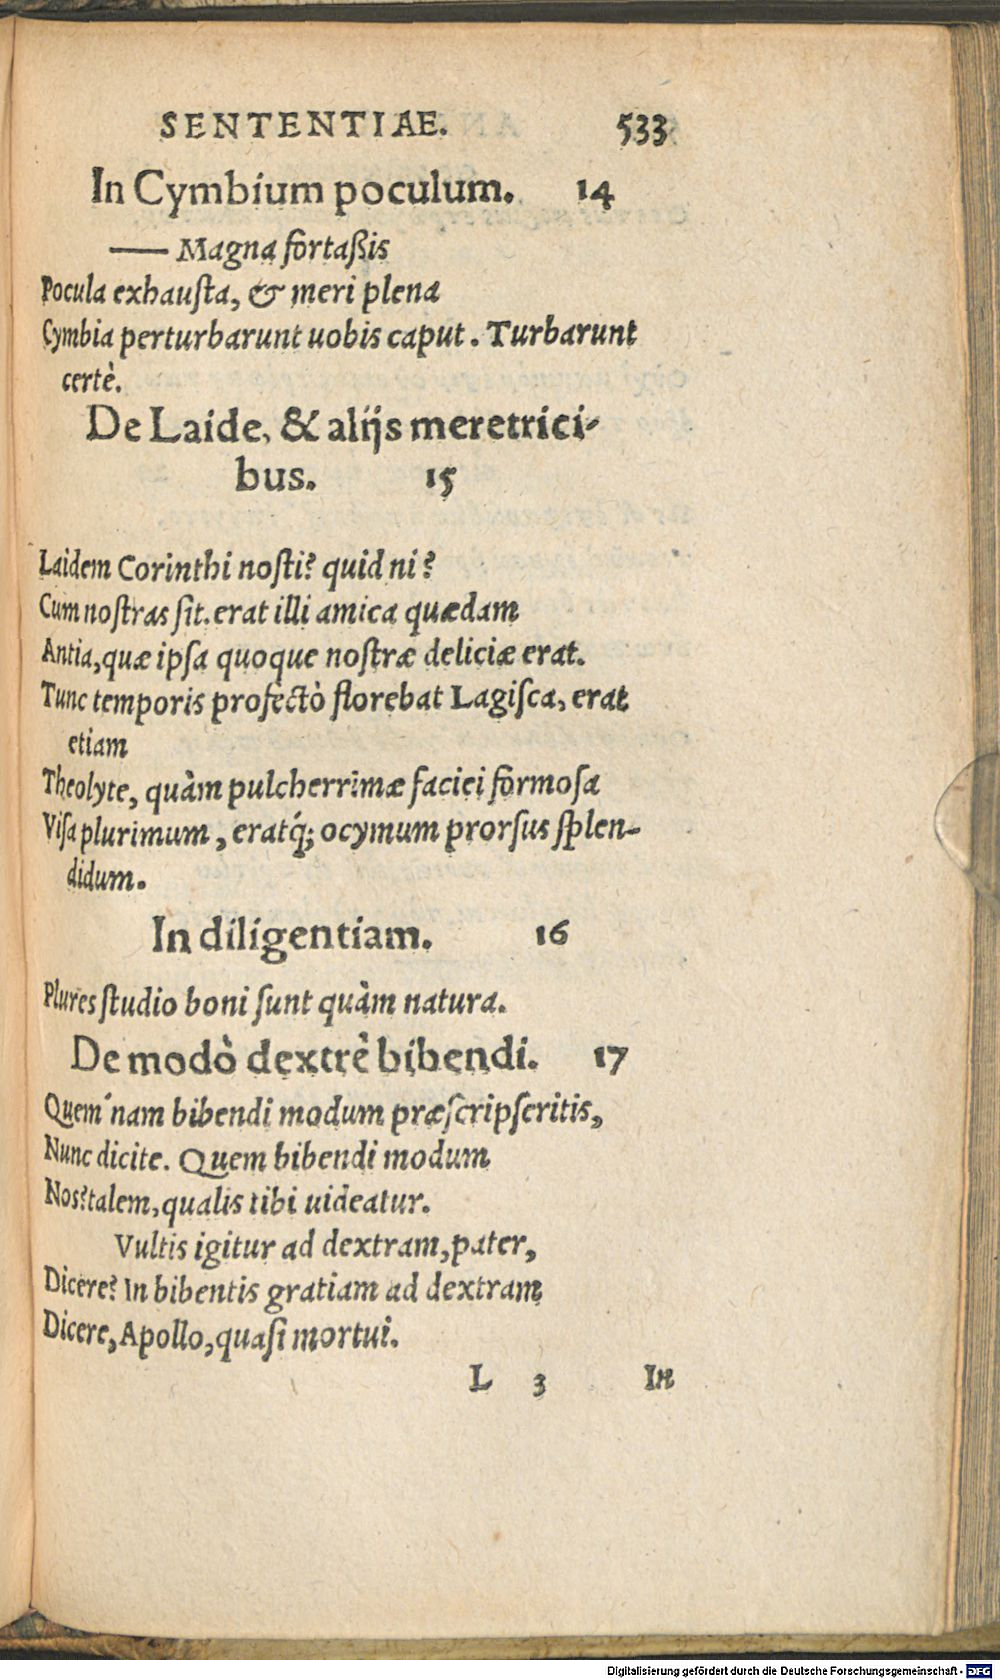 SENTENTIAE. 533
In Cymbium poculum. 14
—— Magna fortaßis
Pocula exhausta, & meri plena
Cymbia perturbarunt uobis caput. Turbarunt
certè.
De Laide, & alijs meretrici-
bus. 15
Laidem Corinthi nosti? quid ni?
Cum nostras sit. erat illi amica quædam
Antia, quæ ipsa quoque nostræ deliciæ erat.
Tunc temporis profectò florebat Lagisca, erat
etiam
Theolyte, quàm pulcherrimæ faciei formosa
Visa plurimum, eratq́; ocymum prorsus splen-
didum.
In diligentiam. 16
Plures studio boni sunt quàm natura.
De modò dextrè bibendi. 17
Quem´nam bibendi modum præscripseritis,
Nunc dicite. Quem bibendi modum
Nos? talem, qualis tibi uideatur.
Vultis igitur ad dextram, pater,
Dicere? In bibentis gratiam ad dextram
Dicere, Apollo, quasi mortui.
L 3 In
Digitalisierung gefördert durch die Deutsche Forschungsgemeinschaft - DFG